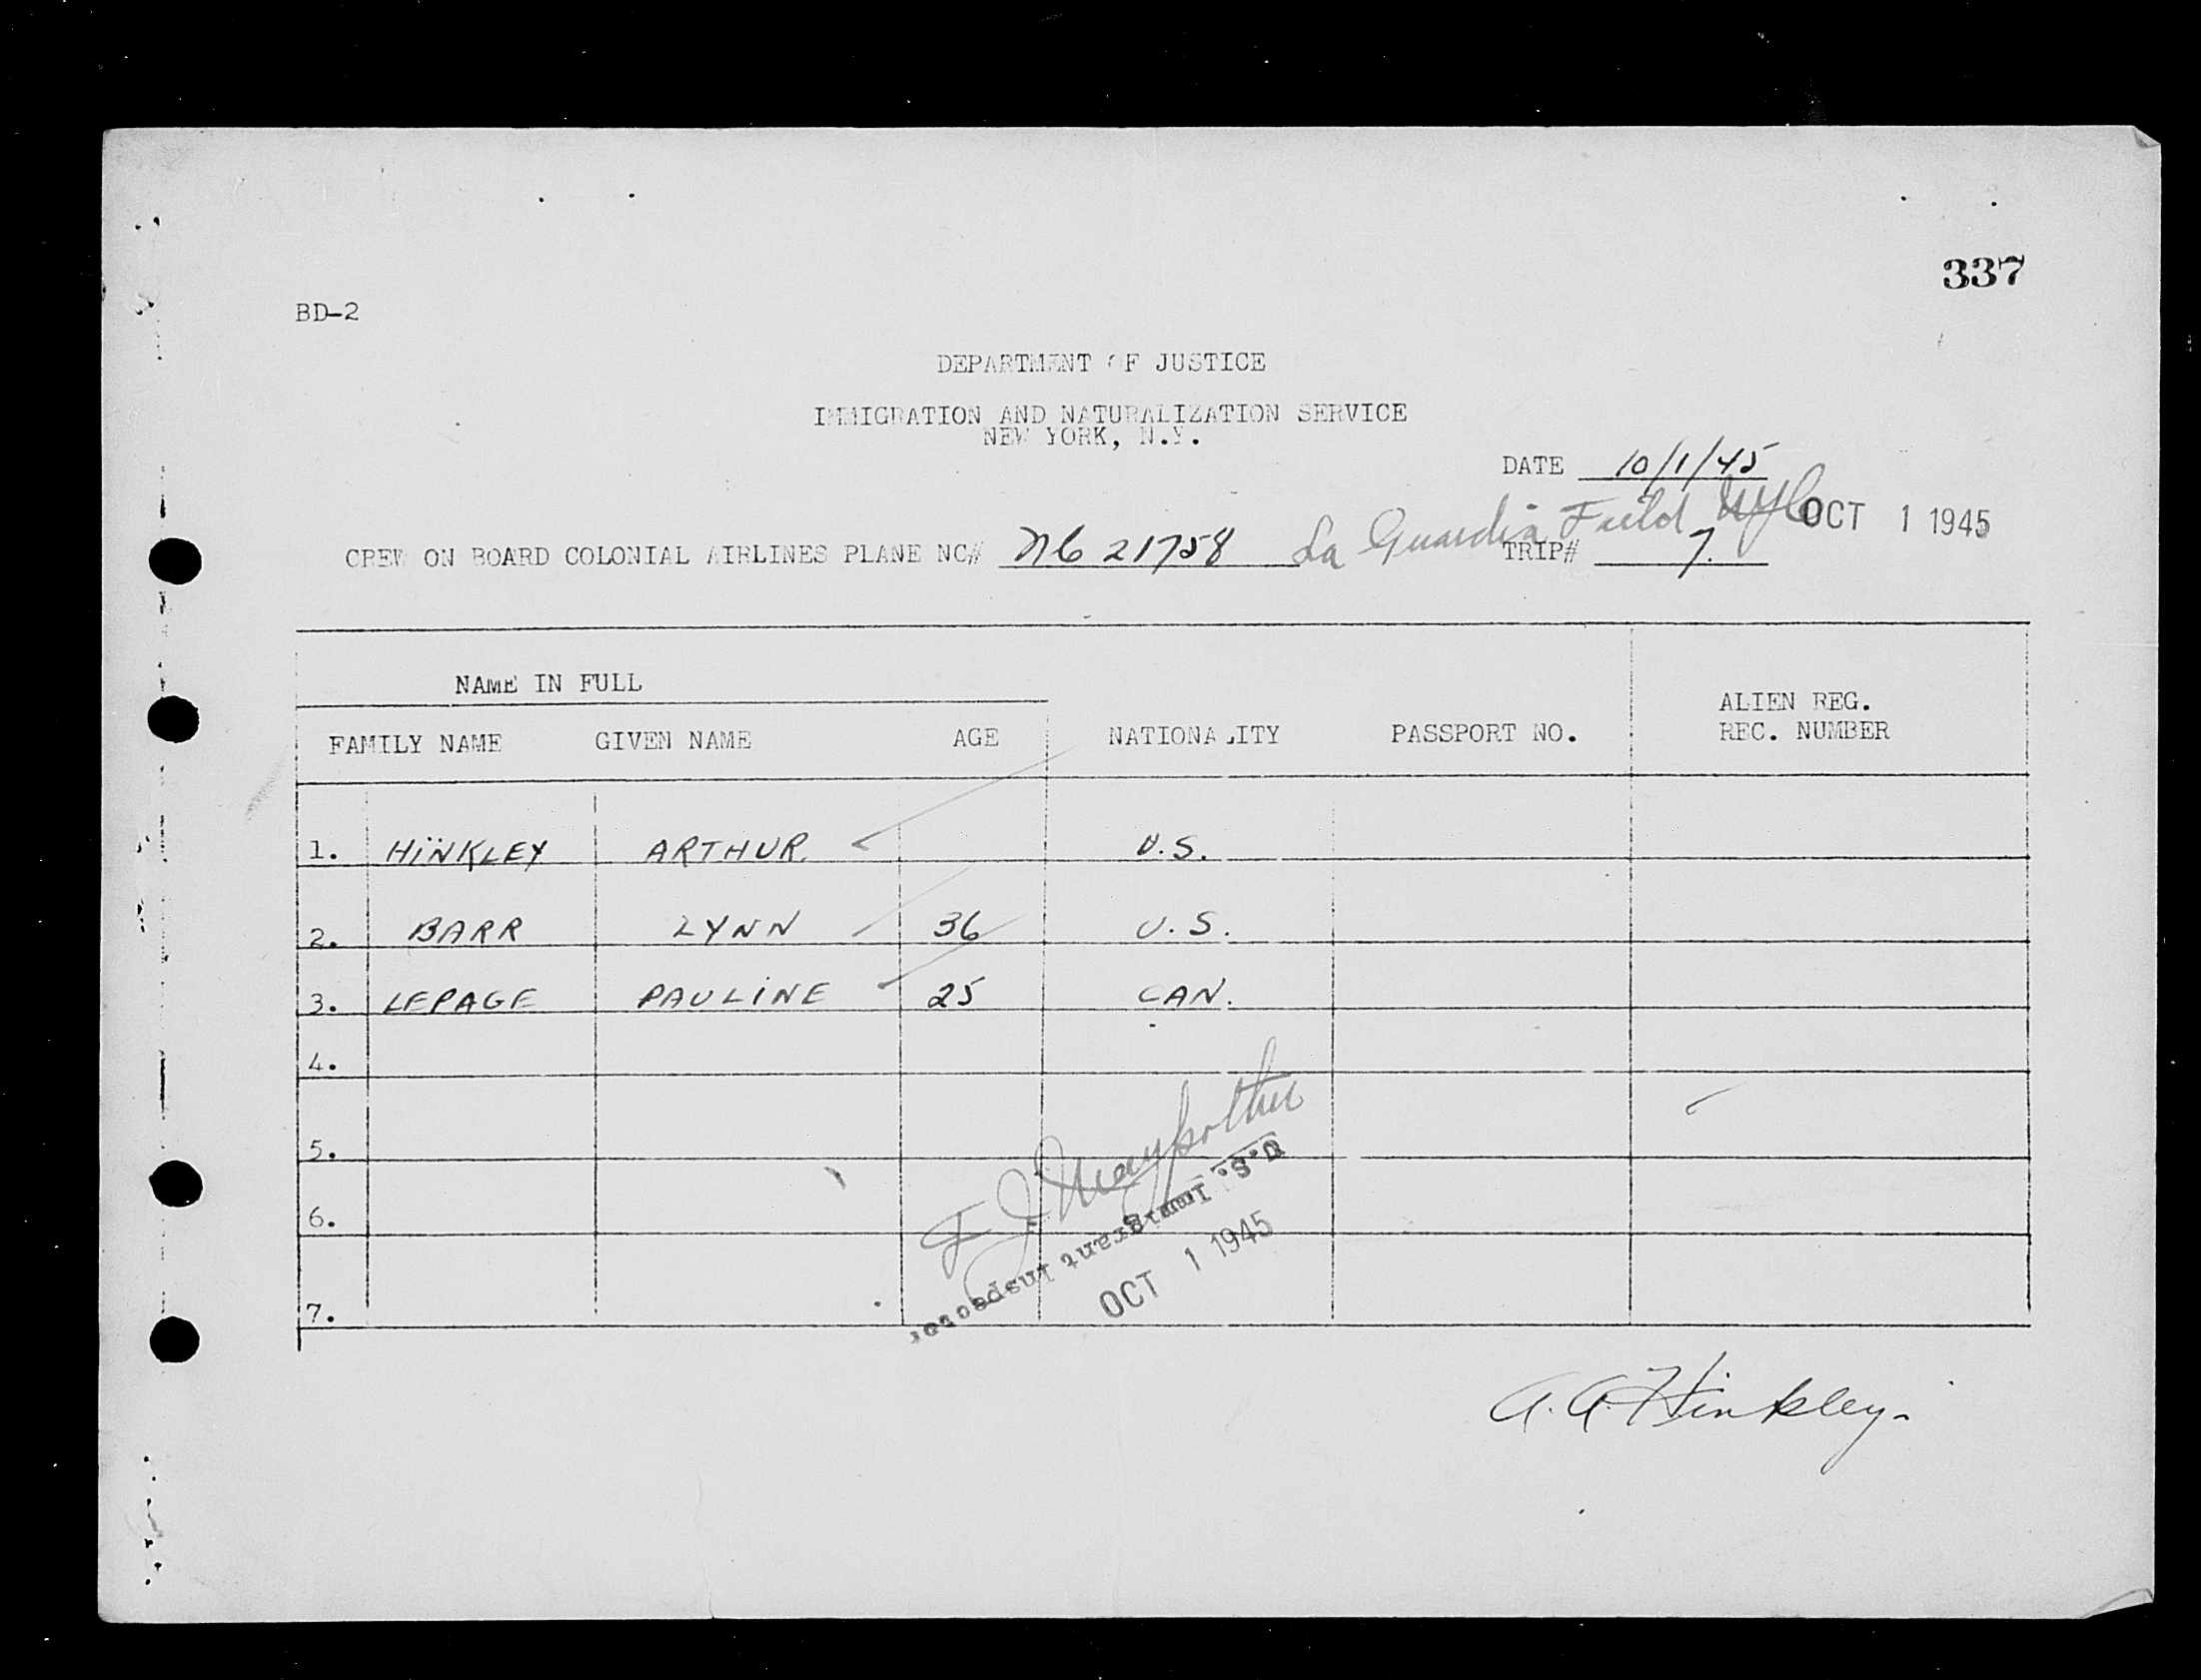 337
BD-2
DEPARTMENT OF JUSTICE
IMMIGRATION AND NATURALIZATION SERVICE
NEW YORK, N.Y.
DATE 10/1/45
La Guardia Field NYC OCT 1 1945
CREW ON BOARD COLONIAL AIRLINES PLANE NC# NC 21758 TRIP# 7.
NAME IN FULL
FAMILY NAME GIVEN NAME AGE NATIONALITY PASSPORT NO. ALIEN REG. REC. NUMBER
1. HINKLEY ARTHUR U.S.
2. BARR LYNN 36 U.S.
3. LEPAGE PAULINE 25 CAN.
4.
5.
6.
7.
U.S. Immigrant Inspector
OCT 1 1945
A. A. Hinkley.